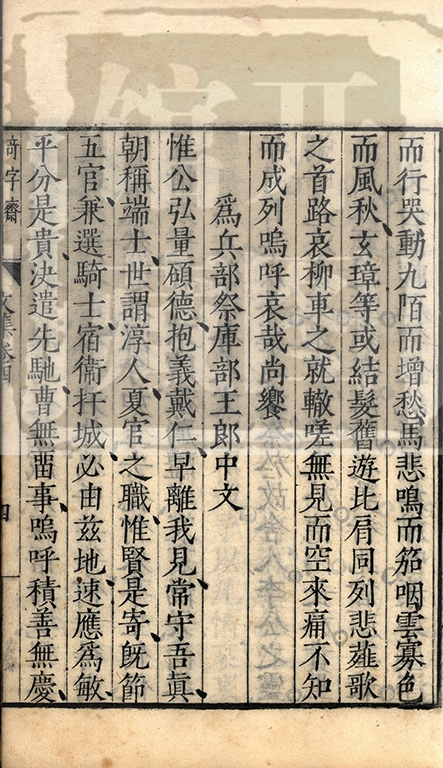 而行哭動九陌而增愁馬悲鳴而笳咽雲寡色
而風秋玄璋等或結髮舊遊比肩同列悲薤歌
之首路哀柳車之就轍嗟無見而空來痛不知
而成列嗚呼哀哉尚饗
爲兵部祭庫部王郎中文
惟公弘量碩德抱義戴仁早離我見常守吾眞
朝稱端士世謂淳人夏官之職惟賢是寄旣節
五官兼選騎士宿衞扞城必由兹地速應爲敏
平分是貴決遣先馳曹無畱事嗚呼積善無慶
竒字齋
文集卷四
四